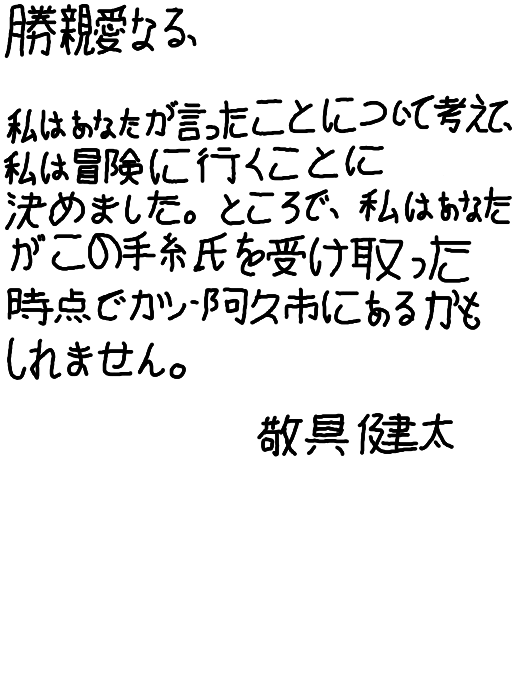 勝親愛なる、
私はあなたが言ったことについて考えて、
私は冒険に行くことに
決めました。ところで、私はあなた
がこの手紙を受け取った
時点でカツー阿久市にあるかも
しれません。
敬具 健太